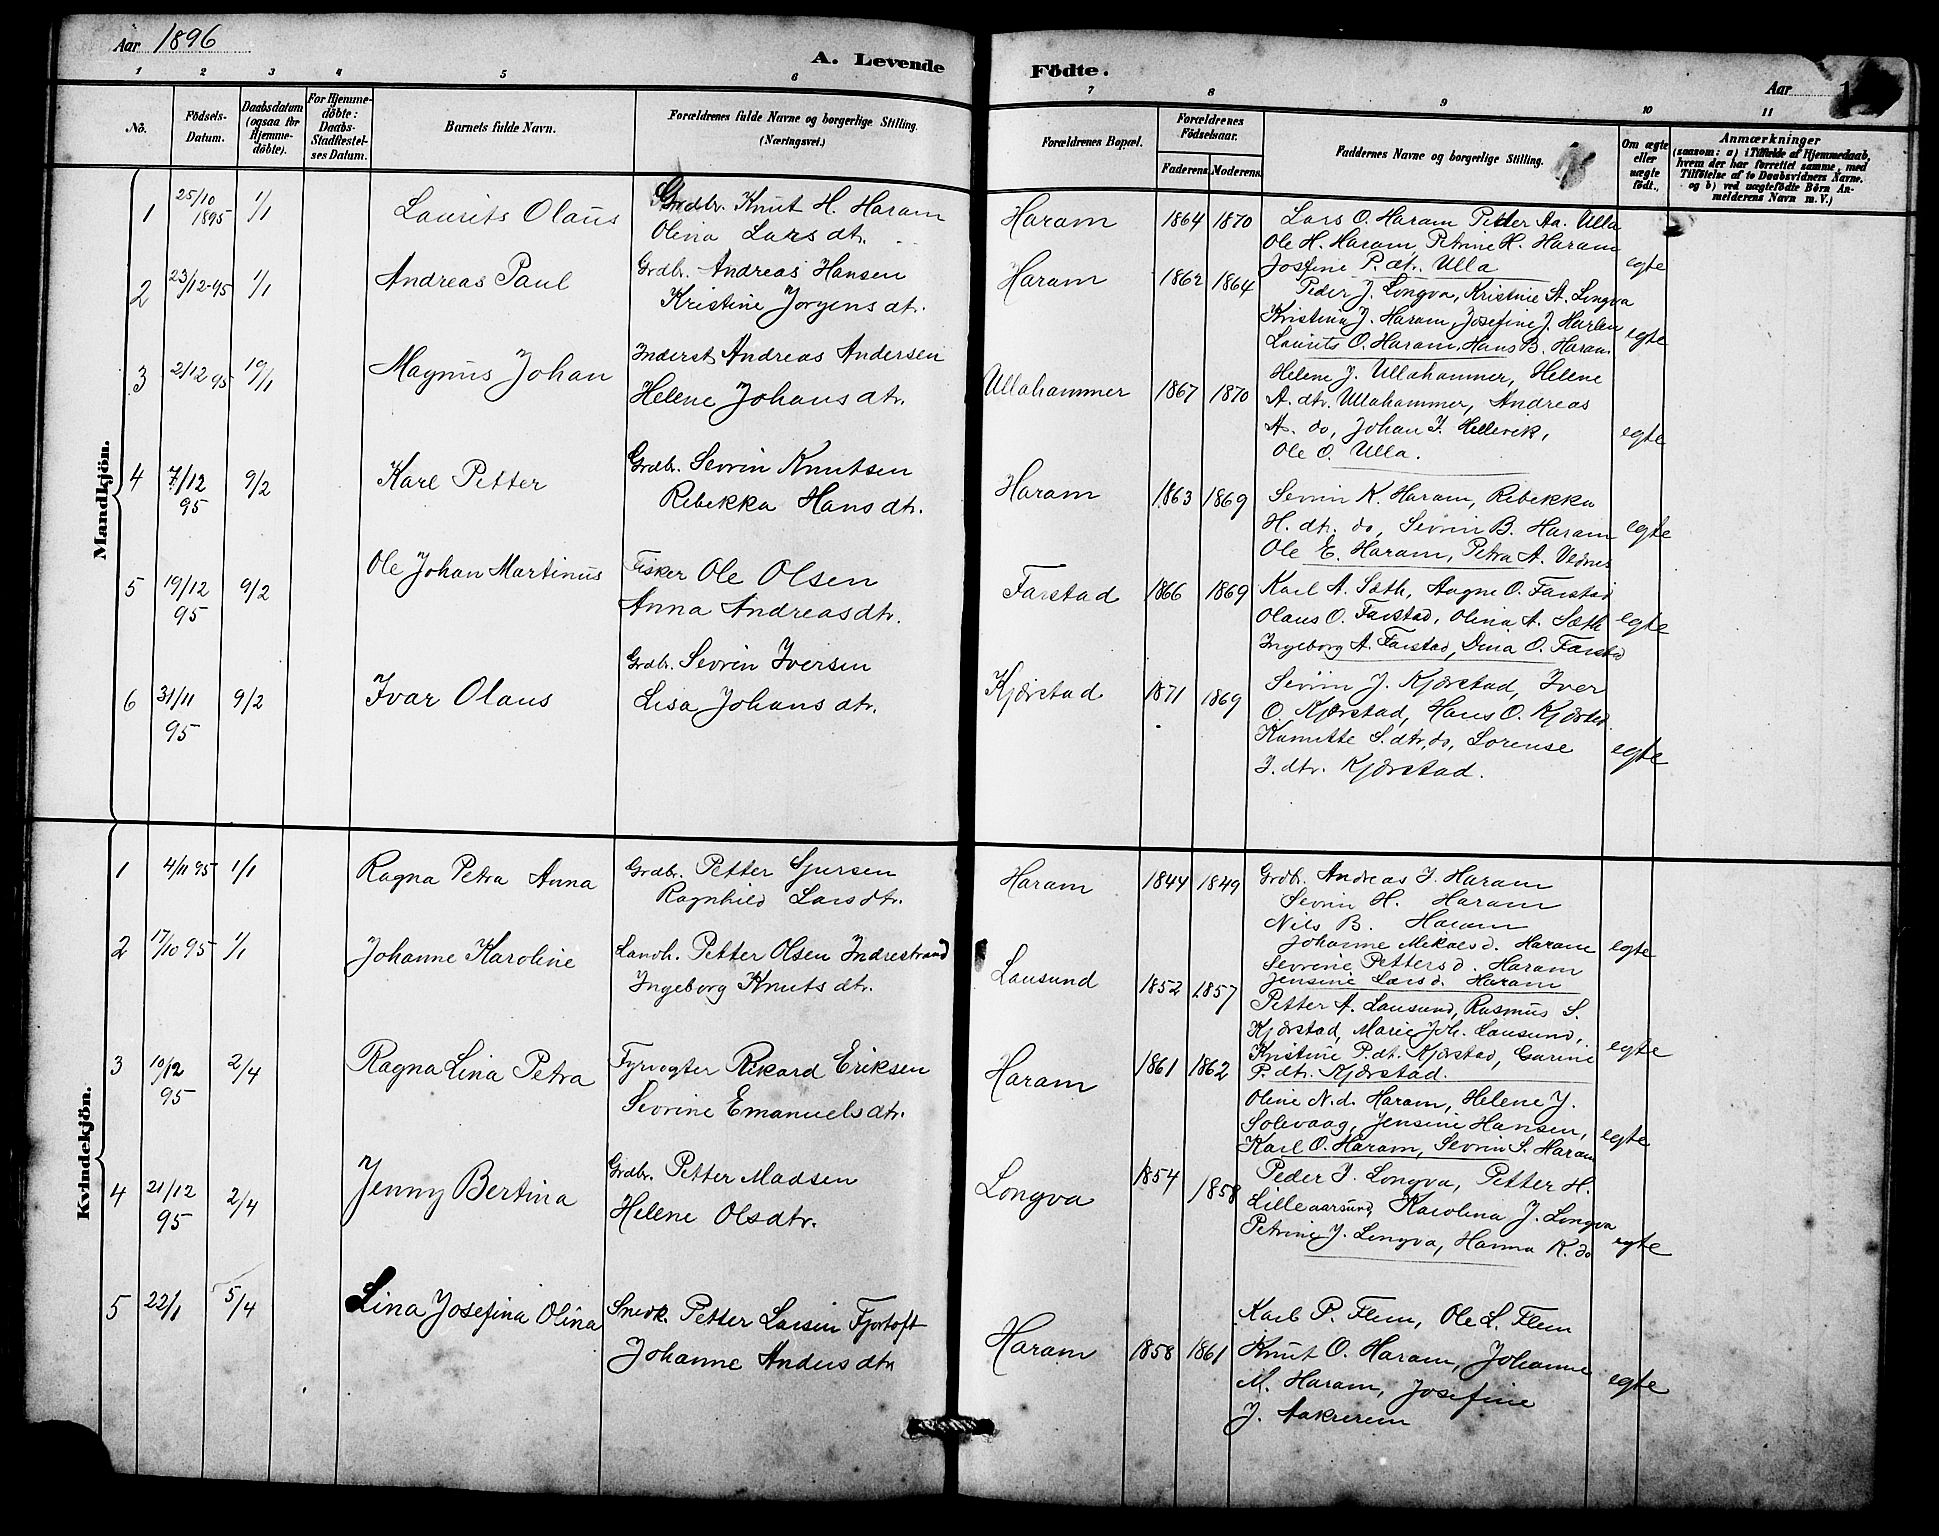 Aar 1896
A. Levende Födte.
Aar 1
1 2 3 4 5 6 7 8 9 10 11
No.
Födsels-Datum.
Daabsdatum (ogsaa for Hjemme-döbte).
For Hjemme-döbte: Daabs-Stadfæstel-ses Datum.
Barnets fulde Navn.
Forældrenes fulde Navne og borgerlige Stilling.
(Næringsvei.)
Forældrenes Bopæl.
Forældrenes Födselsaar.
Faderens Moderens
Faddernes Navne og borgerlige Stilling.
Om ægte eller uægte födt.
Anmærkninger
(saasom: a) i Tilfælde af Hjemmedaab,
hvem der har forrettet samme, med
Tilföielse af to Daabsvidners Navne.
og b) ved uægtefödte Börn An-
melderens Navn m. V.)
Mandkjön.
1 25/10 1895 1/1 Laurits Olaus Grdbr. Knut H. Haram
Olina Larsdtr.
Haram 1864 1870 Lars O. Haram Petter Aa. Ulla
Ole H. Haram Petrine H. Haram
Josfine P. dtr. Ulla egte
2 23/12-95 1/1 Andreas Paul Grdbr. Andreas Hansen
Kristine Jorgensdtr.
Haram 1862 1864 Peder J. Longva, Kristine A. Longva
Kristina J. Haram, Josefine J. Haram
Laurits O. Haram, Hans B. Haram egte
3 2/12 95 19/1 Magnus Johan Inderst Andreas Andersen
Helene Johansdtr.
Ullahammer 1867 1870 Helene J. Ullahammer, Helene
A. dtr. Ullahammer, Andreas
A. do, Johan I. Hellevik,
Ole O. Ulla. egte
4 7/12 95 9/2 Karl Petter Grdbr. Sevrin Knutsen
Rebekka Hansdtr.
Haram 1863 1869 Sevrin K. Haram, Rebekka
H. dtr. do, Sevrin B. Haram
Ole E. Haram, Petra A. egte
5 19/12 95 9/2 Ole Johan Martinus Fisker Ole Olsen
Anna Andreasdtr.
Farstad 1866 1869 Karl A. Sæth, Aagne O. Farstad
Olaus O. Farstad, Olina A. Sæth
Ingeborg A. Farstad, Dina O. Farstad egte
6 31/11 95 9/2 Ivar Olaus Grdbr. Sevrin Iversen
Lisa Johansdtr.
Kjørstad 1871 1869 Sevrin J. Kjørstad, Iver
O. Kjørstad, Hans O. Kjørstad
S. dtr. do, Lorense
I. dtr. Kjørstad. egte
Kvindekjön.
1 4/11 95 1/1 Ragna Petra Anna Grdbr. Petter Sjursen
Ragnhild Larsdtr.
Haram 1844 1849 Grdbr. Andreas J. Haram
Sevrin H. Haram
Nils B. Haram
Johanne Mikaelsd. Haram
Sevrine Pettersd. Haram
Jensine Larsd. Haram egte
2 17/10 95 1/1 Johanne Karoline Landh. Petter Olsen Indrestrand
Ingeborg Knutsdtr.
Lausund 1852 1857 Petter A. Lausund, Rasmus S.
Kjørstad, Marie Joh. Lausund,
Kristine P. dt. Kjørstad, Gurine
P. dtr. Kjørstad. egte
3 10/12 95 2/4 Ragna Lina Petra Fyrvogter Rikard Eriksen
Sevrine Emanuelsdtr.
Haram 1861 1862 Oline N. d. Haram, Helene J.
Solevaag, Jensine Hansen,
Karl O. Haram, Sevrin S. Haram egte
4 21/12 95 2/4 Jenny Bertina Grdbr. Petter Madsen
Helene Olsdtr.
Longva 1854 1858 Peder J. Longva, Petter H.
Lilleaarsund, Karolina J. Longva
Petrine J. Longva, Hanna K. do egte
5 22/1 5/4 Lina Josefina Olina Snedk. Petter Larsen Fjortoft
Johanne Andersdtr
Haram 1858 1861 Karl P. Flem, Ole L. Flem
Knut O. Haram, Johanne
M. Haram, Josefine
J. Aakrerem egte